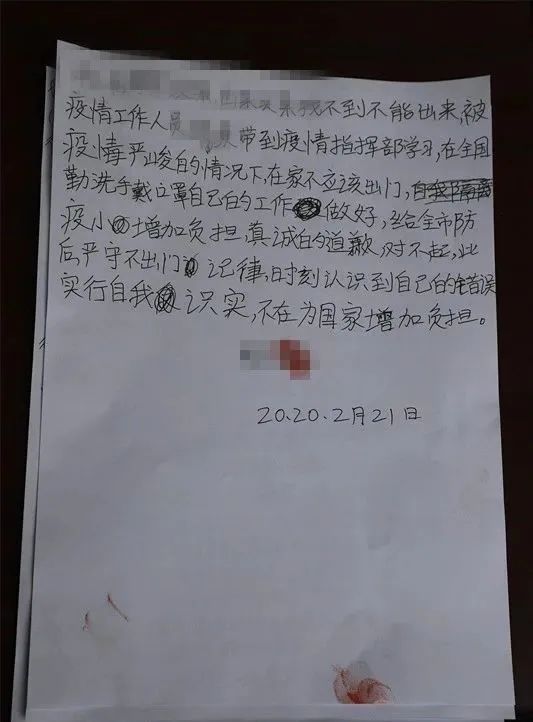 找不到不能出来,被
疫情工作人员 带到疫情指挥部学习,在全国
疫情严峻的情况下,在家不应该出门,自我隔离
勤洗手戴口罩自己的工作 做好,给全市防
疫小 增加负担真诚的道歉,对不起,此
后,严守不出门 记律,时刻认识到自己的错误
实行自我 识实,不在为国家增加负担。
2020.2月21日